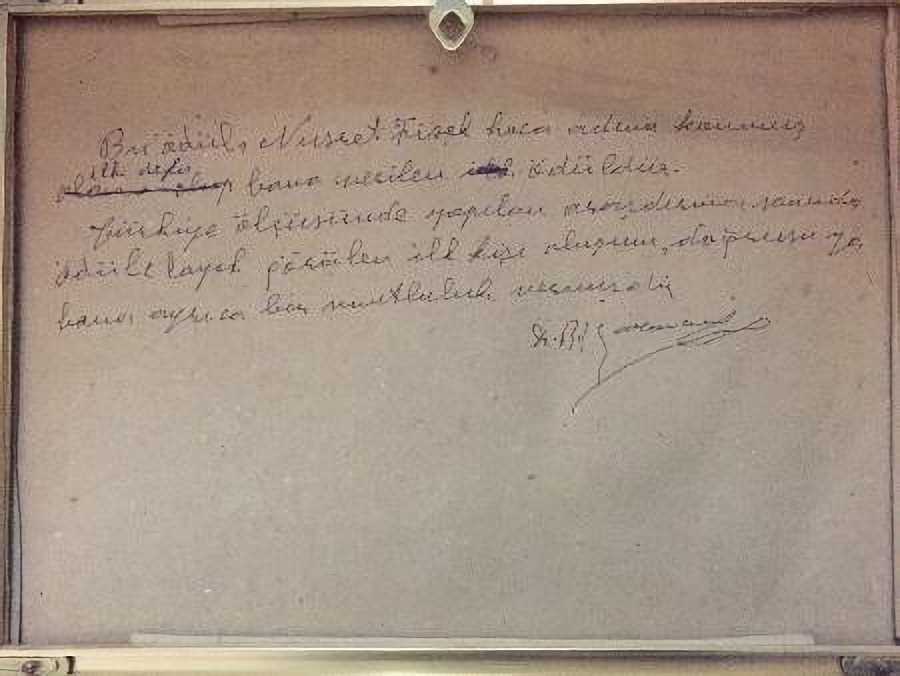 Bu ödül, Nusret Fişek hoca adına konmuş
ilk defa
bana verilen ödüldür.
Türkiye ölçüsünde yapılan araştırma sonucu
ödüle layık görülen ilk kişi oluşum, doğrusu ya,
bana ayrıca bir mutluluk vermiştir
Dr.